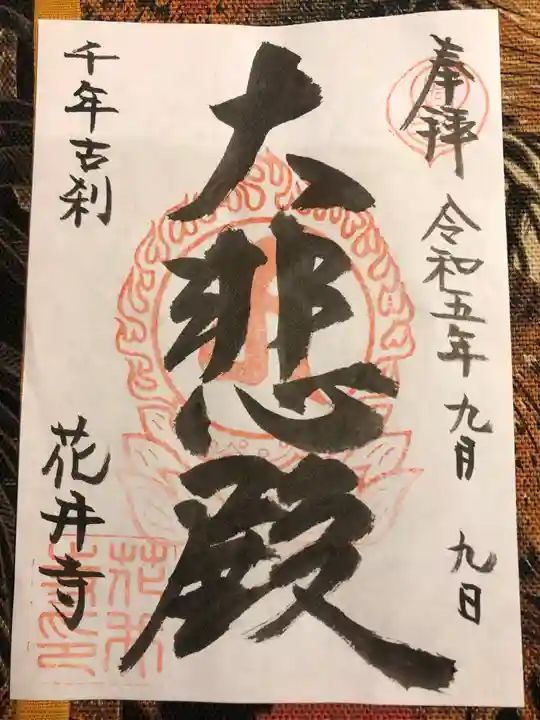 奉拝
令和五年九月九日
大悲殿
千年古刹
花井寺